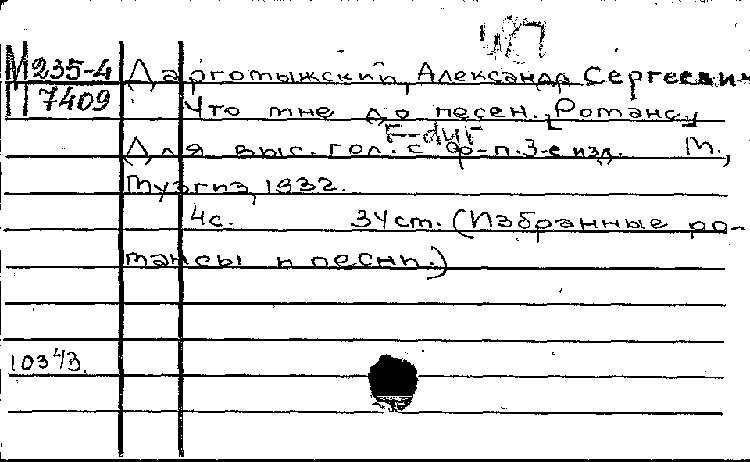 М 235-4 Даргомыжский, Александр Сергеевич
7409 Что мне до песен. [Романс]
F-dur
Для выс. гол. с ф-п. 3-е изд. М.,
Музгиз, 1932.
4с. 34см. (Избранные ро-
мансы и песни.)